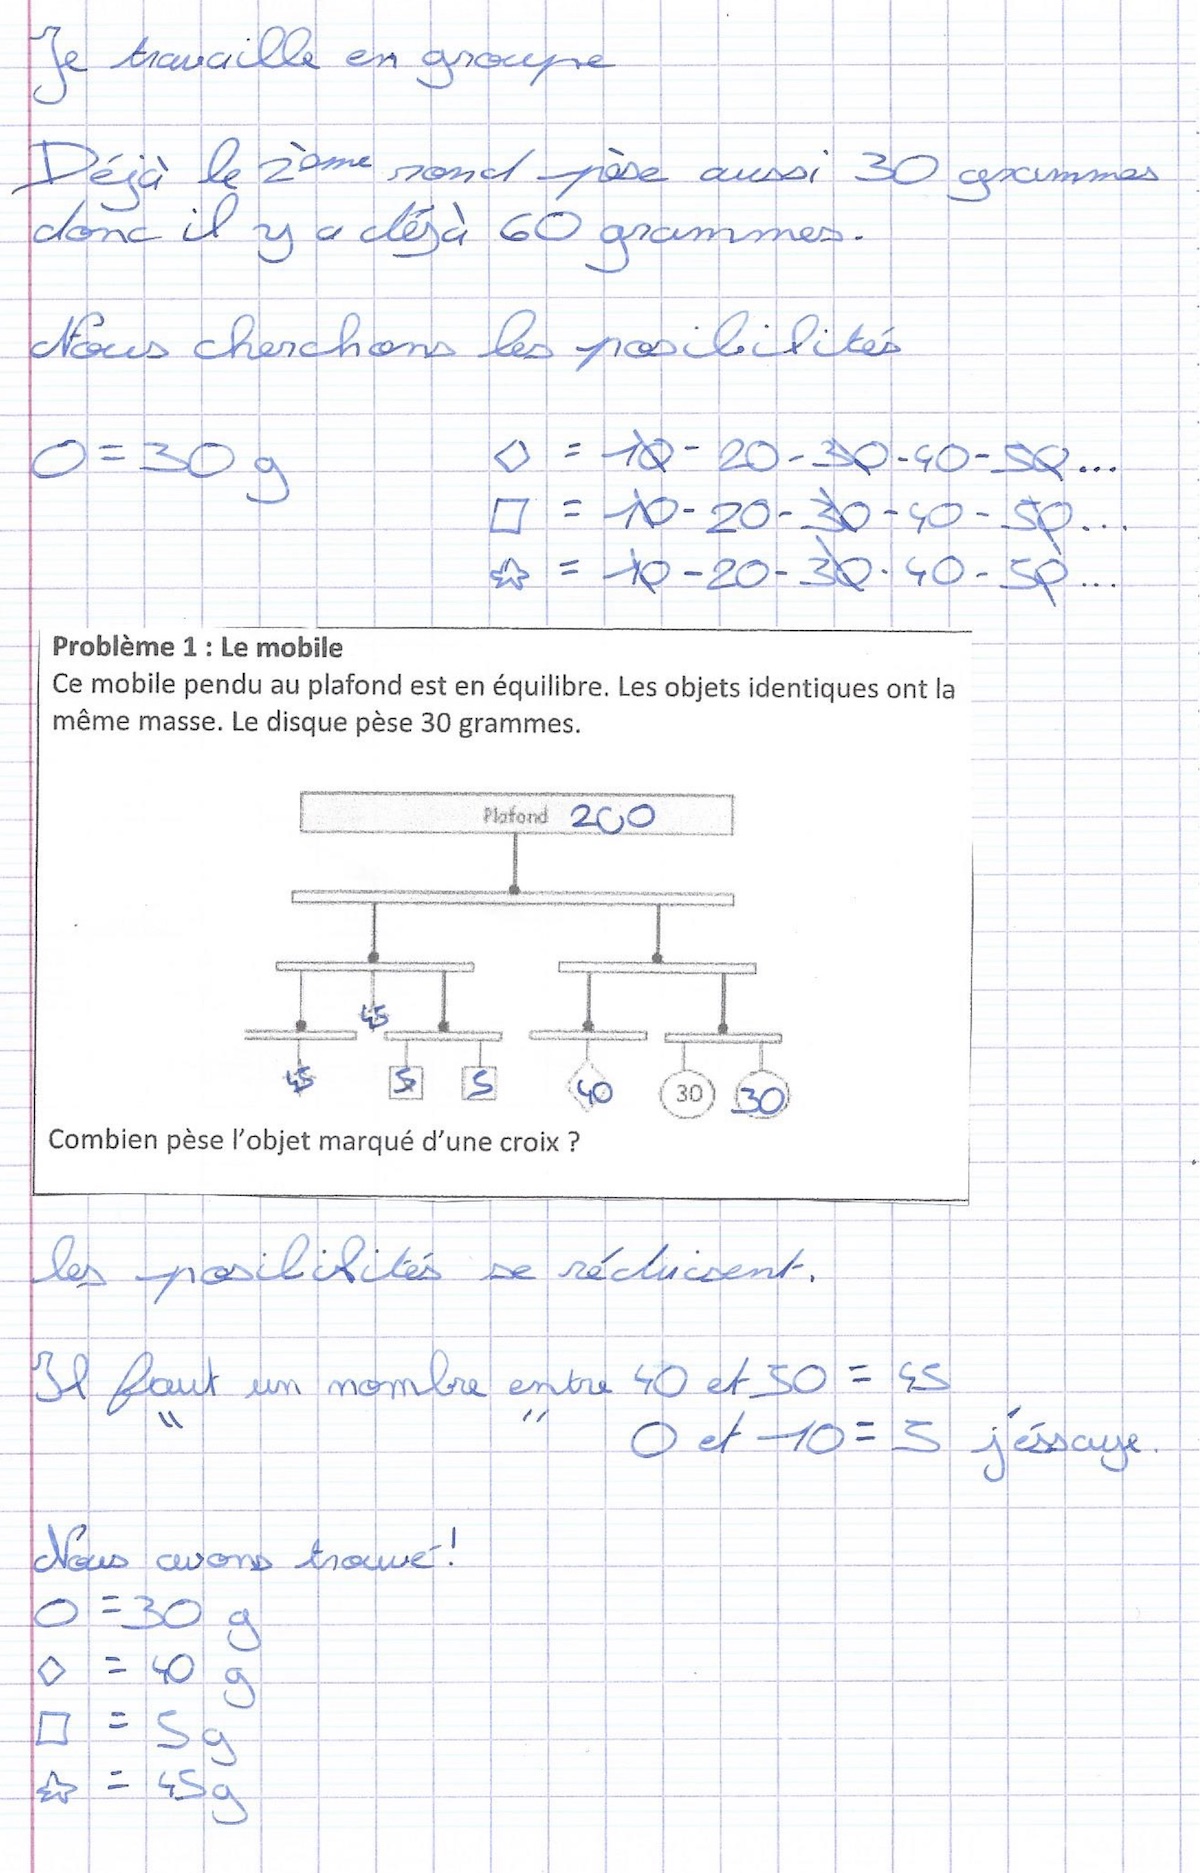 Je travaille en groupe
Déjà le 2ème rond pèse aussi 30 grammes
donc il y a déjà 60 grammes.
Nous cherchons les posibilités
O = 30 g
◇ = 10 - 20 - 30 - 40 - 50 ...
□ = 10 - 20 - 30 - 40 - 50 ...
☆ = 10 - 20 - 30 - 40 - 50 ...
Problème 1 : Le mobile
Ce mobile pendu au plafond est en équilibre. Les objets identiques ont la
même masse. Le disque pèse 30 grammes.
Plafond 200
45
45 5 5 40 30 30
Combien pèse l'objet marqué d'une croix ?
les posibilités se réduisent.
Il faut un nombre entre 40 et 50 = 45
" " 0 et 10 = 5 j'éssaye.
Nous avons trouvé !
O = 30 g
◇ = 40 g
□ = 5 g
☆ = 45 g